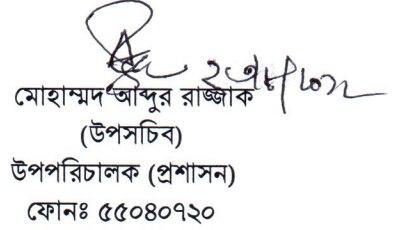 মোহাম্মদ আব্দুর রাজ্জাক
(উপসচিব)
উপপরিচালক (প্রশাসন)
ফোনঃ ৫৫০৪০৭২০